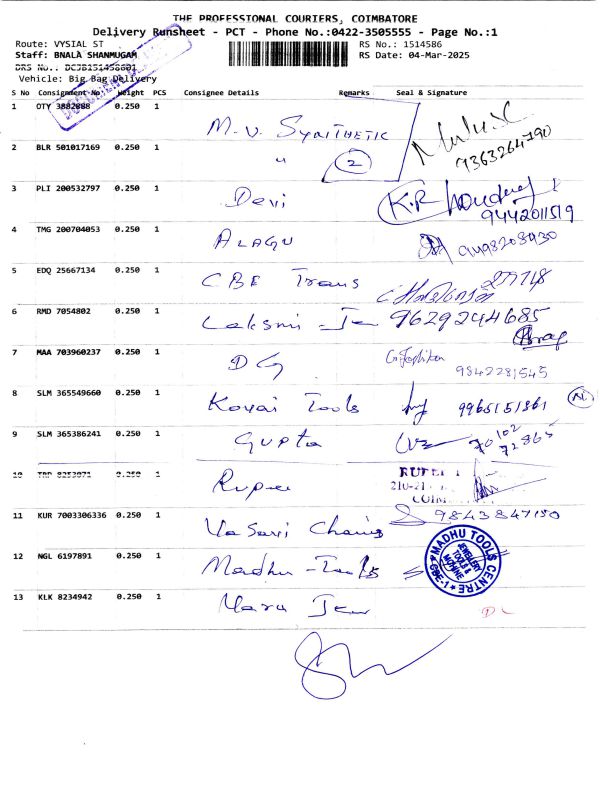 THE PROFESSIONAL COURIERS, COIMBATORE
Delivery Runsheet - PCT - Phone No.:0422-3505555 - Page No.:1
Route: VYSIAL ST RS No.: 1514586
Staff: BNALA SHANMUGAM RS Date: 04-Mar-2025
DRS No.:
Vehicle: Big Bag Delivery
S No Consignment No Weight PCS Consignee Details Remarks Seal & Signature
1 OTY 3882088 0.250 1 M.V. Synithetic
9363264790
2 BLR 501017169 0.250 1 " 2
3 PLI 200532797 0.250 1 Devi K.R
9442011519
4 TMG 200704053 0.250 1 Alagu
5 EDQ 25667134 0.250 1 CBE Trans
6 RMD 7054802 0.250 1 9629244685
7 MAA 703960237 0.250 1 DG
9842281545
8 SLM 365549660 0.250 1 Kovai Tools 9965151861
9 SLM 365386241 0.250 1 Gupta 70102 72865
10 TRP 8253071 0.250 1 Rupee
210-21
COIM
11 KUR 7003306336 0.250 1 Vasavi 9843847150
12 NGL 6197891 0.250 1 Madhu-Tools
MADHU TOOLS CENTRE
JEWELLERY TOOLS & MACHINE
CBE-1
13 KLK 8234942 0.250 1